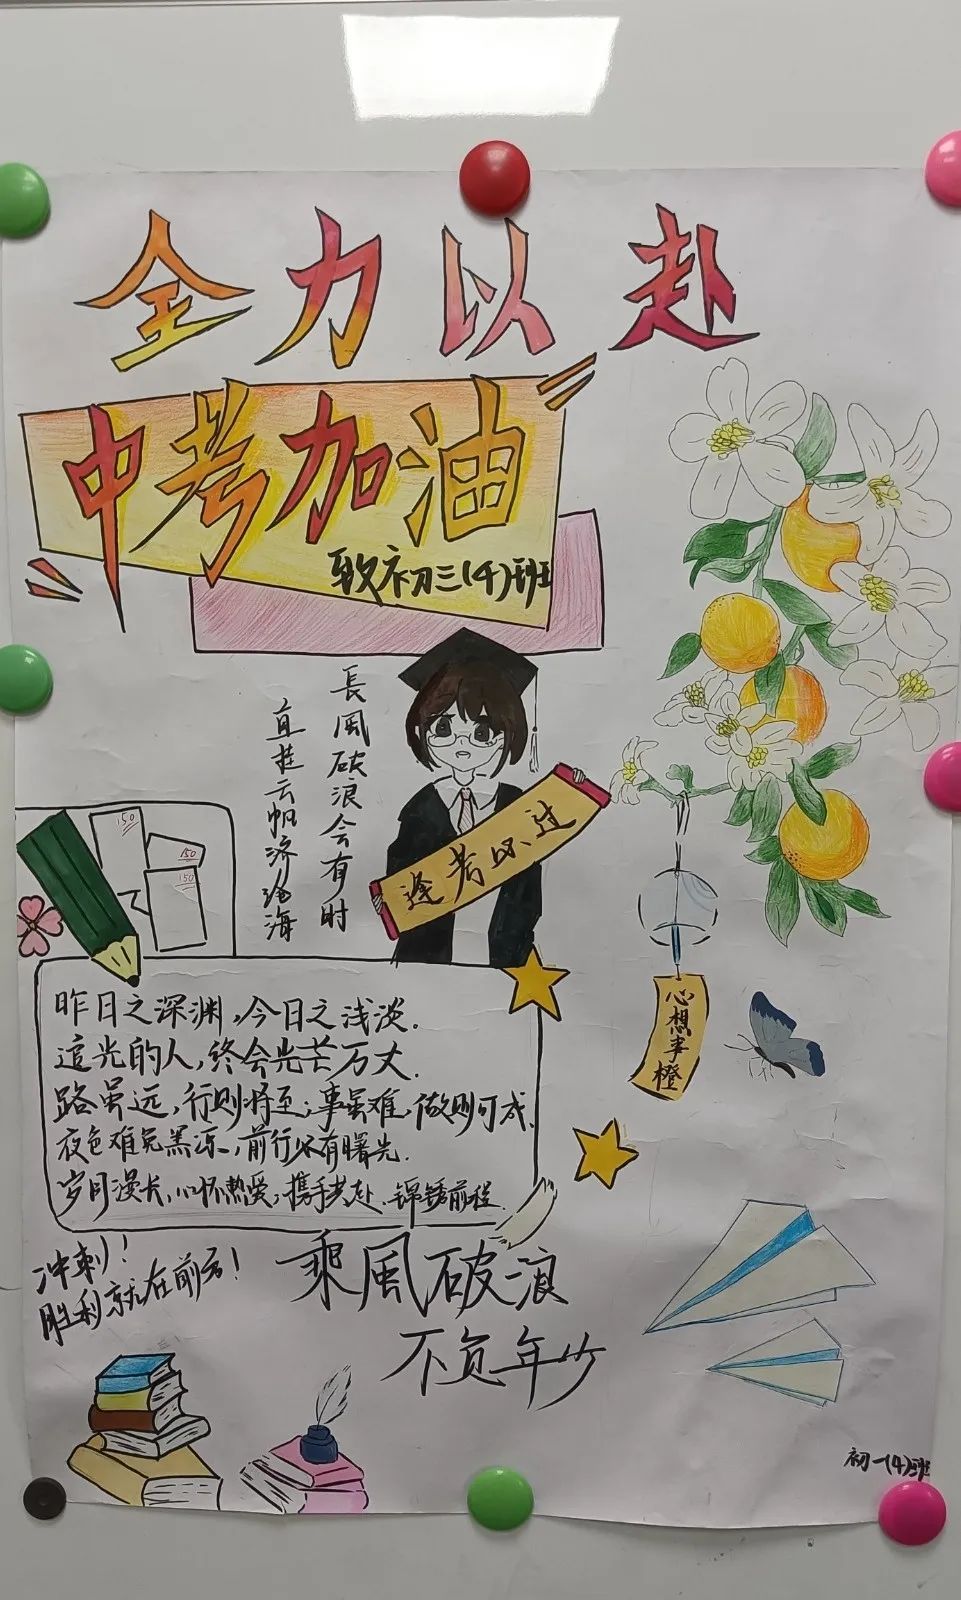 全力以赴
中考加油
致初三(4)班
長風破浪会有时
直挂云帆济沧海
逢考必过
150
150
150
心想事橙
昨日之深渊,今日之浅淡.
追光的人,终会光芒万丈.
路虽远,行则将至;事虽难,做则可成.
夜色难免黑凉,前行必有曙光.
岁月漫长,心怀热爱,携手共赴.锦绣前程.
冲刺!
胜利就在前方!
乘風破浪
不负年少
初一(4)班